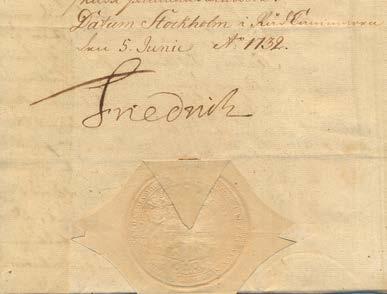 Datum Stockholm i Råd Cammaren
den 5. Junii A:o 1732.
Friedrich